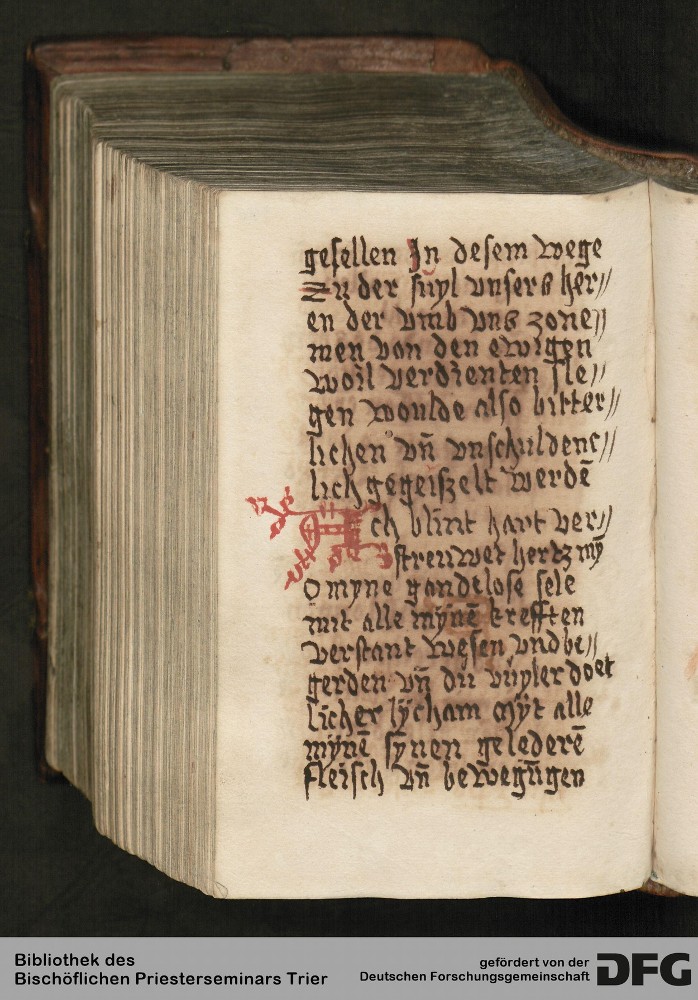 gesellen In desem wege
Zu der suyl vnsers her//
en der vmb vns zone//
men von den ewigen
woil verdienten sle//
gen woulde also bitter//
lichen vn̄ vnschuldenc//
lich gegeiszelt werdē
Ach blint hart ver//
streuwet hertz mȳ
O myne gandelose sele
mit alle mynē krefften
verstant wesen vnd be//
gerden vn̄ du vuyler doet
licher lycham myt alle
mynē synen gelederē
fleisch vn̄ bewegūgen
Bibliothek des
Bischöflichen Priesterseminars Trier
gefördert von der
Deutschen Forschungsgemeinschaft
DFG